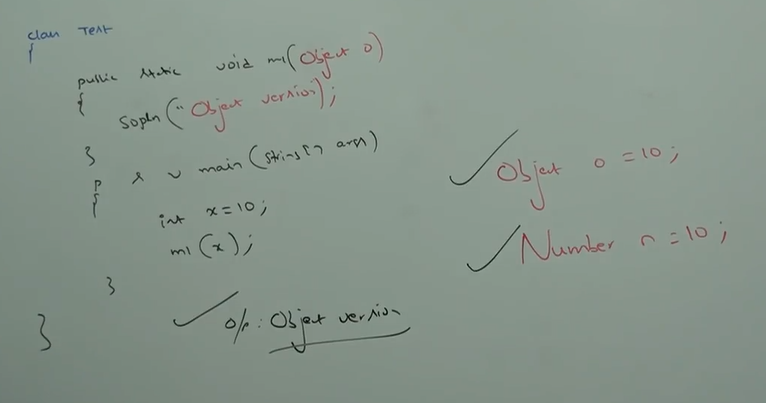 class Test
{
public static void m1(Object o)
{
Sopln("Object version");
}
p s v main(String[] args)
{
int x=10;
m1(x);
}
}
o/p: Object version
Object o =10;
Number n =10;